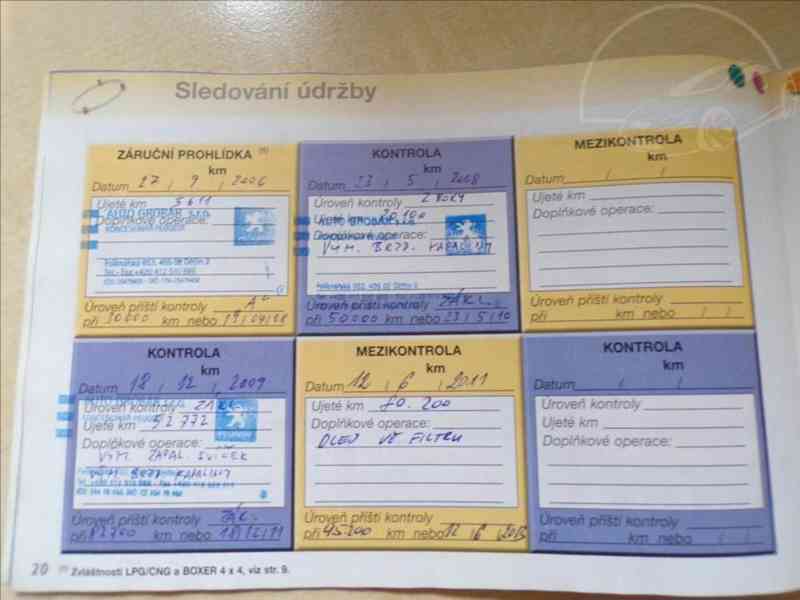 Sledování údržby
ZÁRUČNÍ PROHLÍDKA
km
Datum 27 / 9 / 2006
Ujeté km 5611
AUTO GROBÁR, s.r.o.
Doplňkové operace:
KONCESIONÁŘ PEUGEOT
PEUGEOT
Úroveň příští kontroly A
při 30000 km nebo
KONTROLA
km
Datum 23 / 5 / 2008
Úroveň kontroly
Ujeté km
AUTO GROBÁR s.r.o.
Doplňkové operace:
VÝM. BRZD. KAPALINY
Úroveň příští kontroly ZÁKL.
při 50000 km nebo 23 / 5 / 10
MEZIKONTROLA
km
Datum / /
Ujeté km
Doplňkové operace:
Úroveň příští kontroly
při km nebo / /
KONTROLA
km
Datum 18 / 12 / 2009
AUTO GROBÁR s.r.o.
Úroveň kontroly ZÁKL.
KONCESIONÁŘ PEUGEOT
Ujeté km 52772
PEUGEOT
Doplňkové operace:
VÝM. ZAPAL. SVÍČEK
VÝM. BRZD. KAPALINY
Úroveň příští kontroly ZÁKL.
při 82700 km nebo 18 / 12 / 11
MEZIKONTROLA
km
Datum 12 / 6 / 2011
Ujeté km 80.200
Doplňkové operace:
OLEJ VČ FILTRU
Úroveň příští kontroly
při km nebo 12 / 6 / 2013
KONTROLA
km
Datum / /
Úroveň kontroly
Ujeté km
Doplňkové operace:
Úroveň příští kontroly
při km nebo / /
20 Zvláštnosti LPG/CNG a BOXER 4 x 4, viz str. 9.